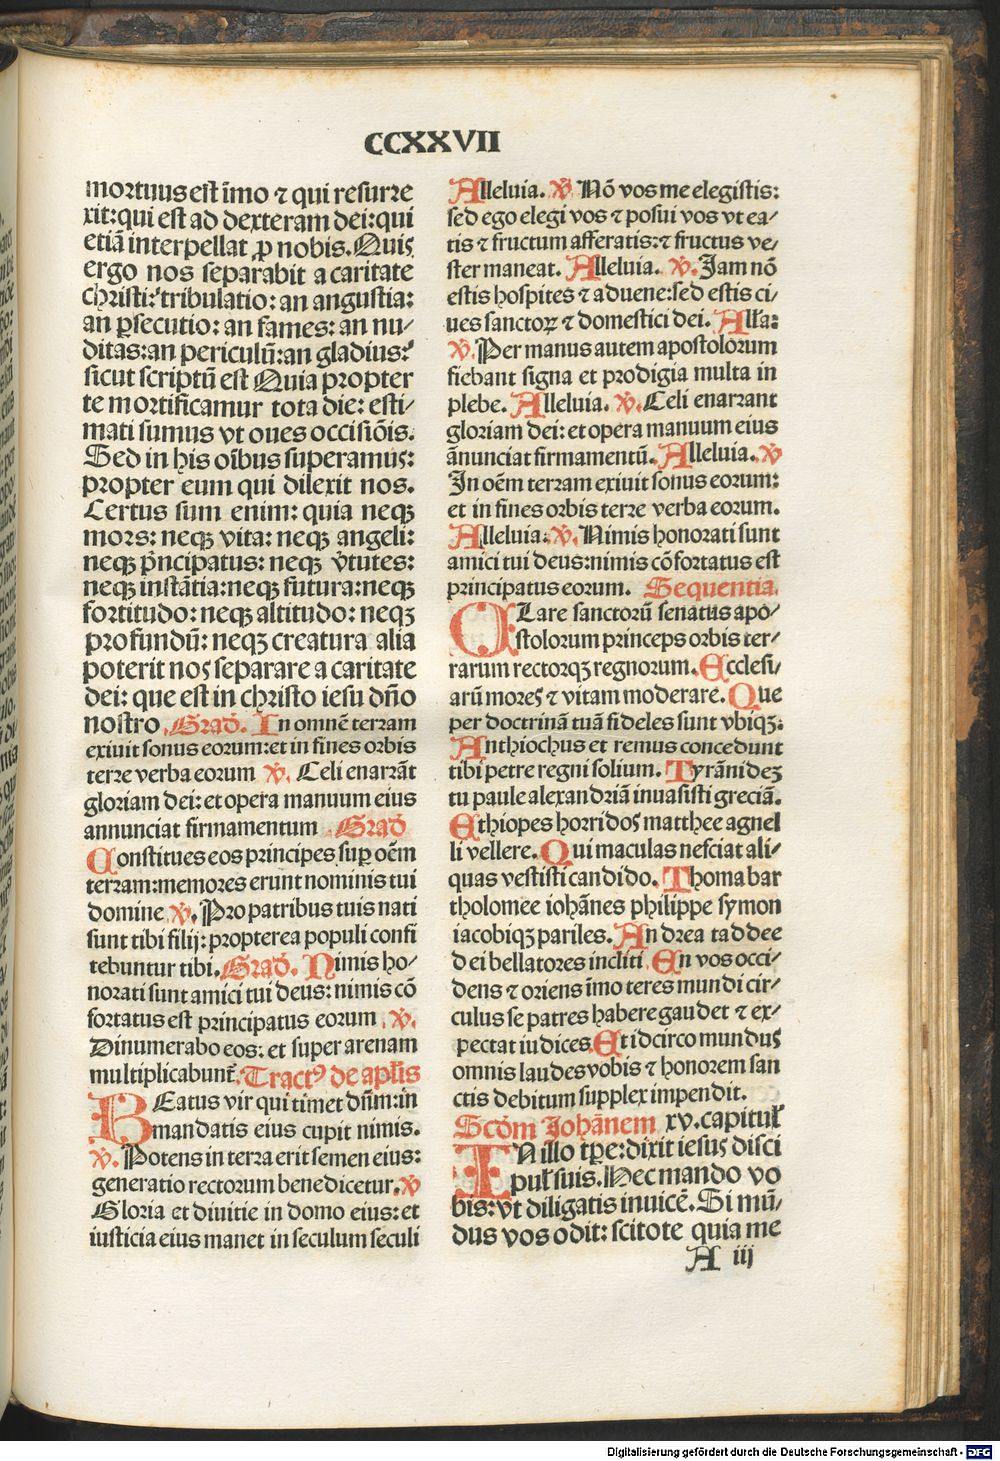 CCXXVII
mortuus est īmo ⁊ qui resurre
xit: qui est ad dexteram dei: qui
etiā interpellat ꝓ nobis. Quis
ergo nos separabit a caritate
christi: tribulatio: an angustia:
an ꝑsecutio: an fames: an nu/
ditas: an periculū: an gladius:
sicut scriptū est Quia propter
te mortificamur tota die: esti/
mati sumus vt oues occisiōis.
Sed in his oībus superamus:
propter eum qui dilexit nos.
Certus sum enim: quia neqꝫ
mors: neqꝫ vita: neqꝫ angeli:
neqꝫ p̄ncipatus: neqꝫ v̓tutes:
neqꝫ instātia: neqꝫ futura: neqꝫ
fortitudo: neqꝫ altitudo: neqꝫ
profundū: neqꝫ creatura alia
poterit nos separare a caritate
dei: que est in christo iesu dn̄o
nostro Grad̄. In omnē terram
exiuit sonus eorum: et in fines orbis
terre verba eorum ℣. Celi enarrāt
gloriam dei: et opera manuum eius
annunciat firmamentum Grad̄
Constitues eos principes suꝑ oēm
terram: memores erunt nominis tui
domine ℣. Pro patribus tuis nati
sunt tibi filij: propterea populi confi
tebuntur tibi. Grad̄. Nimis ho/
norati sunt amici tui deus: nimis cō
fortatus est principatus eorum ℣.
Dinumerabo eos: et super arenam
multiplicabunt̄. Tractꝰ de apl̄is
BEatus vir qui timet dn̄m: in
mandatis eius cupit nimis.
℣. Potens in terra erit semen eius:
generatio rectorum benedicetur. ℣
Gloria et diuitie in domo eius: et
iusticia eius manet in seculum seculi
Alleluia. ℣ Nō vos me elegistis:
sed ego elegi vos ⁊ posui vos vt ea/
tis ⁊ fructum afferatis: ⁊ fructus ve/
ster maneat. Alleluia. ℣. Iam nō
estis hospites ⁊ aduene: sed estis ci/
ues sanctoꝝ ⁊ domestici dei. All̄a:
℣. Per manus autem apostolorum
fiebant signa et prodigia multa in
plebe. Alleluia. ℣. Celi enarrant
gloriam dei: et opera manuum eius
ānunciat firmamentū. Alleluia. ℣
In oēm terram exiuit sonus eorum:
et in fines orbis terre verba eorum.
Alleluia. ℣. Nimis honorati sunt
amici tui deus: nimis cōfortatus est
principatus eorum. Sequentia
CLare sanctorū senatus apo/
stolorum princeps orbis ter/
rarum rectorqꝫ regnorum. Ecclesi/
arū mores ⁊ vitam moderare. Que
per doctrinā tuā fideles sunt vbiqꝫ.
Anthiochus et remus concedunt
tibi petre regni solium. Tyrānidez
tu paule alexandriā inuasisti greciā.
Ethiopes horridos matthee agnel
li vellere. Qui maculas nesciat ali/
quas vestisti candido. Thoma bar
tholomee iohānes philippe symon
iacobiqꝫ pariles. Andrea taddee
dei bellatores incliti En vos occi/
dens ⁊ oriens īmo teres mundi cir/
culus se patres habere gaudet ⁊ ex/
pectat iudices. Et idcirco mundus
omnis laudes vobis ⁊ honorem san
ctis debitum supplex impendit.
Scd̄m Iohānem xv. capitul̓
IN illo tꝑe: dixit iesus disci
pul̓ suis. Hec mando vo
bis: vt diligatis inuicē. Si mū/
dus vos odit: scitote quia me
A iij
Digitalisierung gefördert durch die Deutsche Forschungsgemeinschaft - DFG